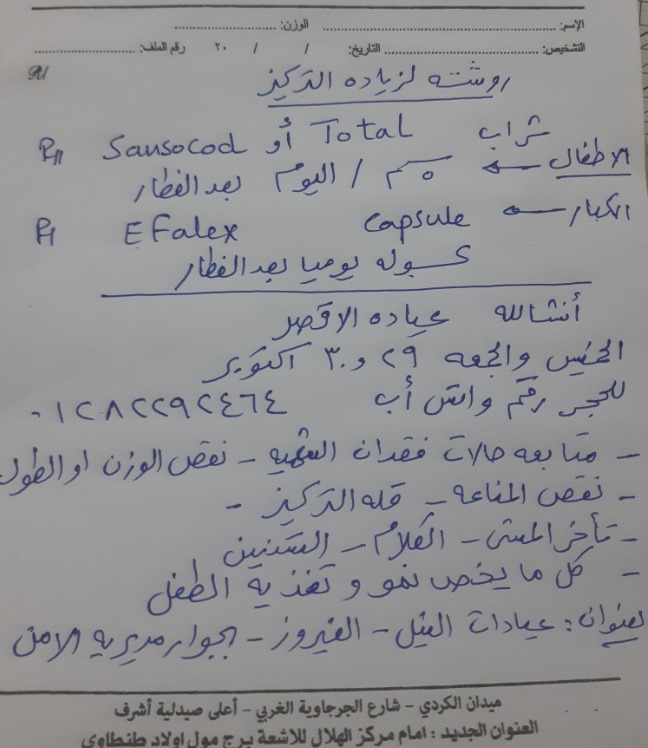 الإسم: الوزن:
التشخيص: التاريخ: / / ٢٠ رقم الملف:
R/
روشته لزياده التركيز
R/ Sansocod أو Total شراب
الاطفال ← ٥سم / اليوم بعد الفطار
R/ EFalex capsule ← الكبار
كبسوله يوميا بعد الفطار
أنشالله عياده الاقصر
الخميس والجمعه ٢٩ و ٣٠ اكتوبر
للحجز رقم واتس أب ٠١٢٨٢٢٩٢٤٦٤
- متابعه حالات فقدان الشهيه - نقص الوزن او الطول
- نقص المناعه - قله التركيز -
- تأخر المشى - الكلام - التسنين
- كل ما يخص نمو و تغذيه الطفل
بعنوان: عيادات النيل - الفيروز - بجوار مديريه الامن
ميدان الكردي - شارع الجرجاوية الغربي - أعلى صيدلية أشرف
العنوان الجديد : امام مركز الهلال للاشعة برج مول اولاد طنطاوي